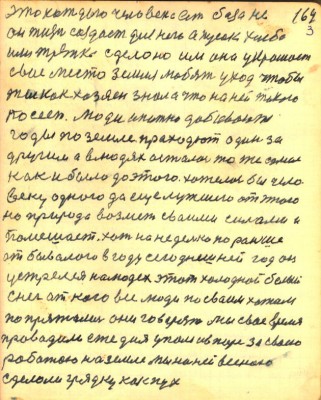 это каждого человека ест база не 164
он жизн создает для него а кусок хлеба 3
или тряпка сделоно им она украшает
свае место земля любит уход чтобы
как хозяен знала что на ней такого
посеен. люди
годы по земле праходют один за
другим а влюдях остался то же самае
как и было до этого. хотелос бы чело
веку одного да еще лутшего от этого
но природа возмет сваими силами и
помешает. хот на неделко по раньше
от бывалого в году сегодняшней год он
устрелея на людех этот холодной белый
снег от кого все люди по сваим хатам
по прятались они говорят мы свае время
проводили сже дня упали в за сваю
работаю на земле мы на ней весною
сделоли грядку как пух